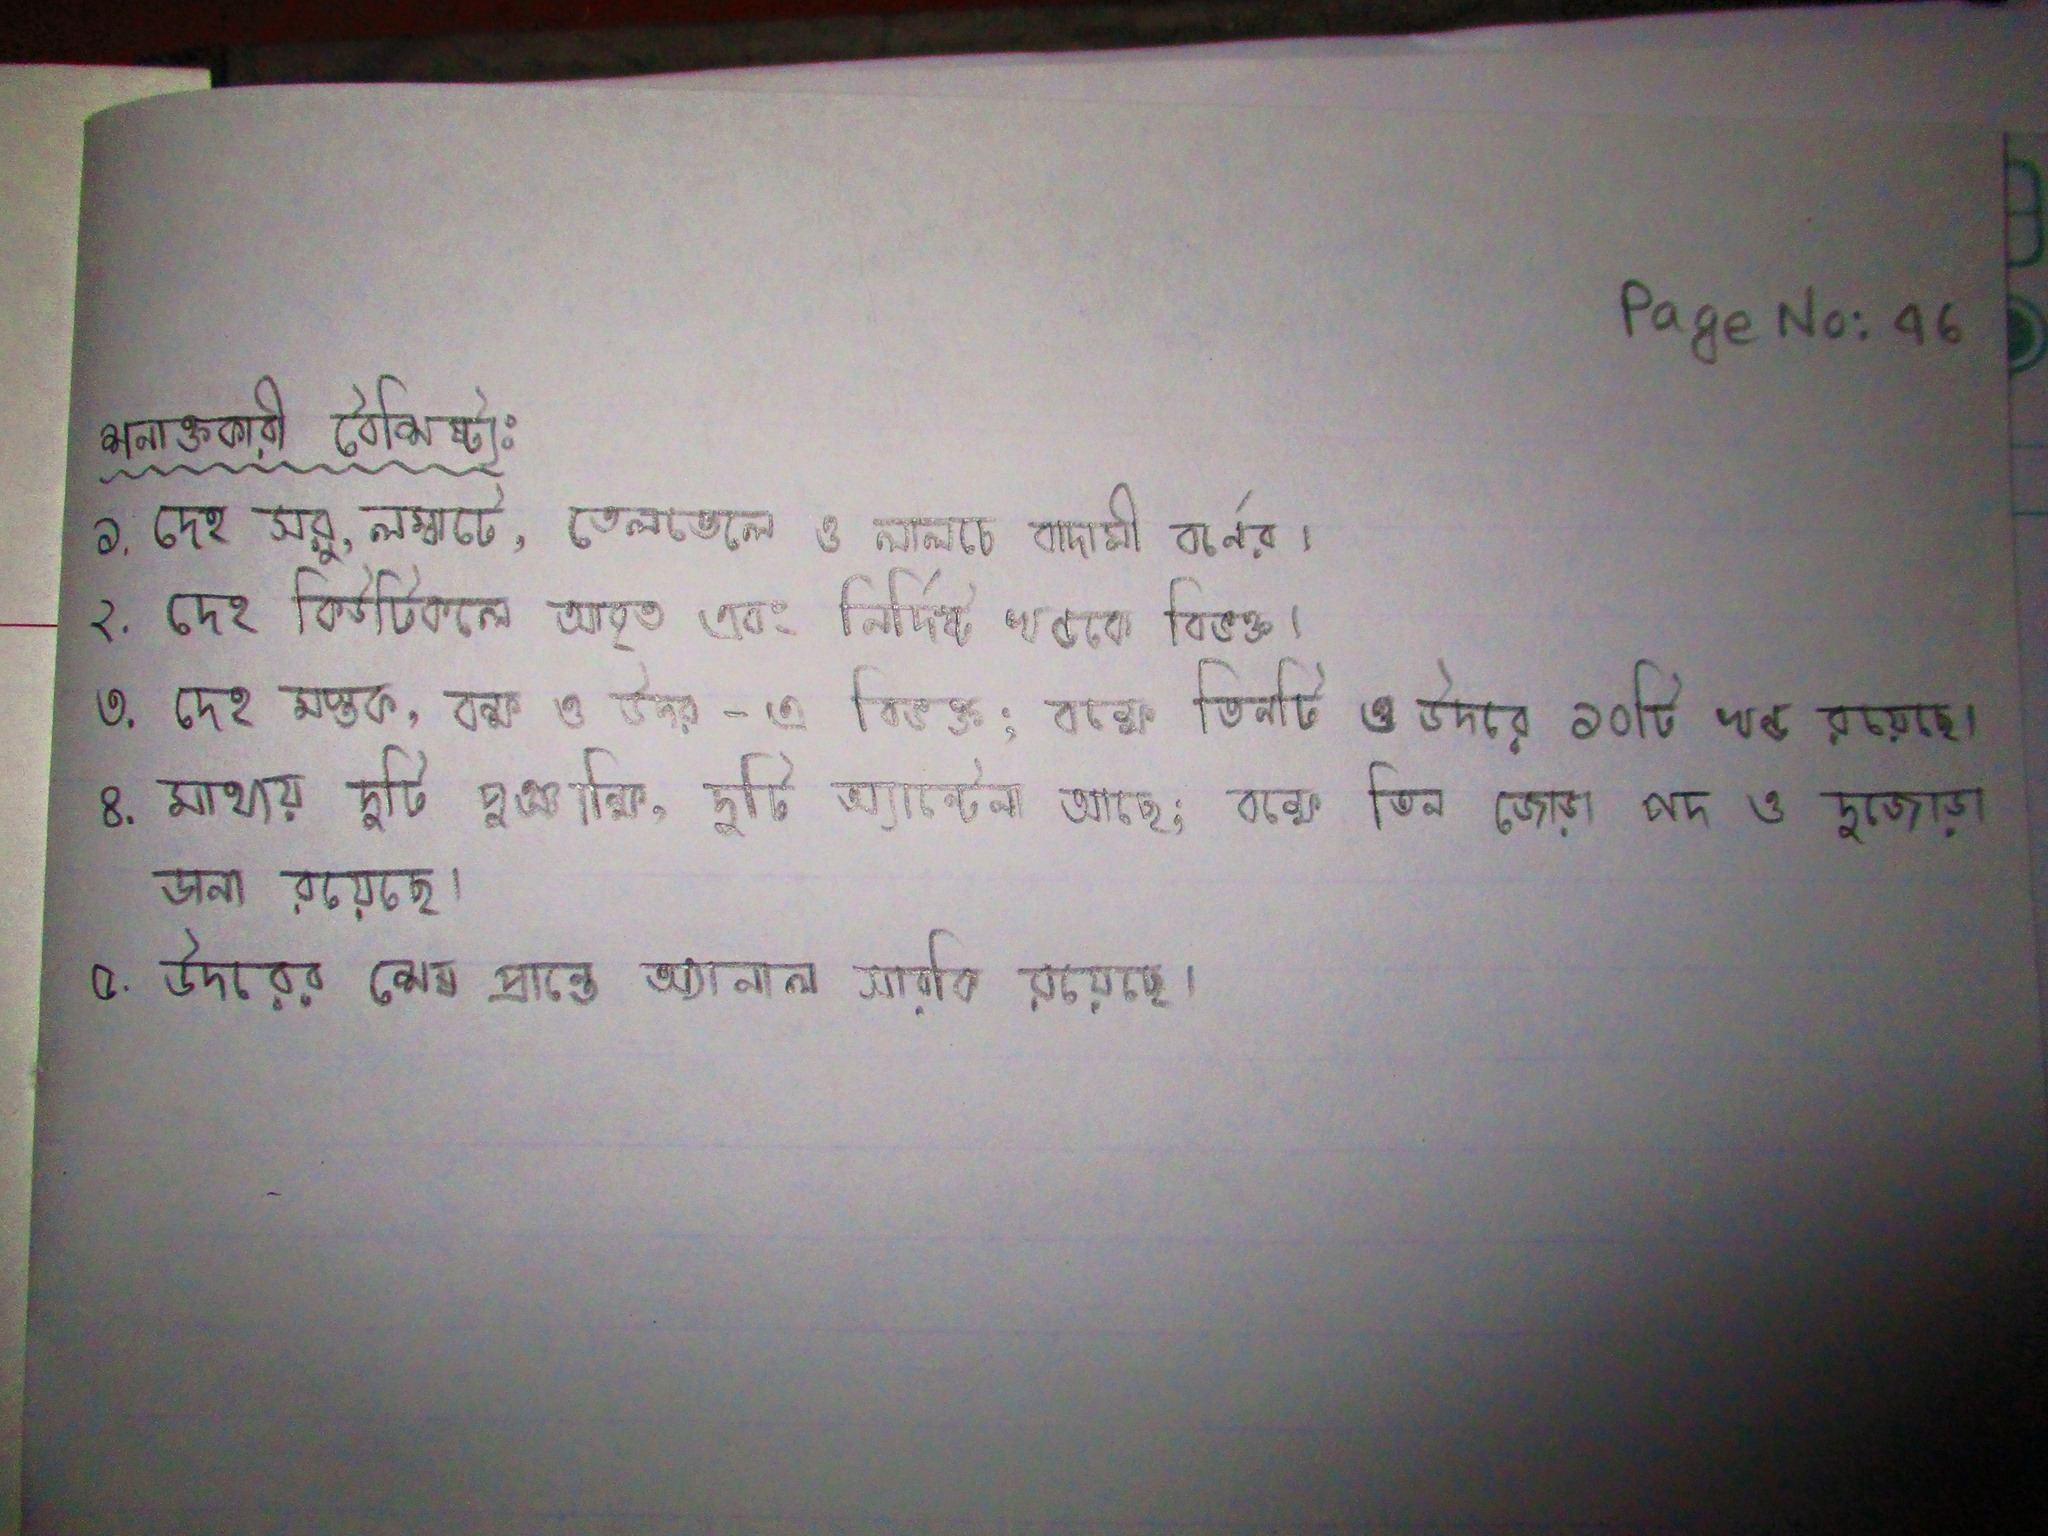 Page No: 46
শনাক্তকারী বৈশিষ্ট্য:
১. দেহ সরু, লম্বাটে, তেলতেলে ও লালচে বাদামী বর্নের।
২. দেহ কিউটিকলে আবৃত এবং নির্দিষ্ট খন্ডকে বিভক্ত।
৩. দেহ মস্তক, বক্ষ ও উদর-এ বিভক্ত; বক্ষে তিনটি ও উদরে ১০টি খন্ড রয়েছে।
৪. মাথায় দুটি পুঞ্জাক্ষি, দুটি অ্যান্টেনা আছে; বক্ষে তিন জোড়া পদ ও দুজোড়া
ডানা রয়েছে।
৫. উদরের শেষ প্রান্তে অ্যানাল সারকি রয়েছে।